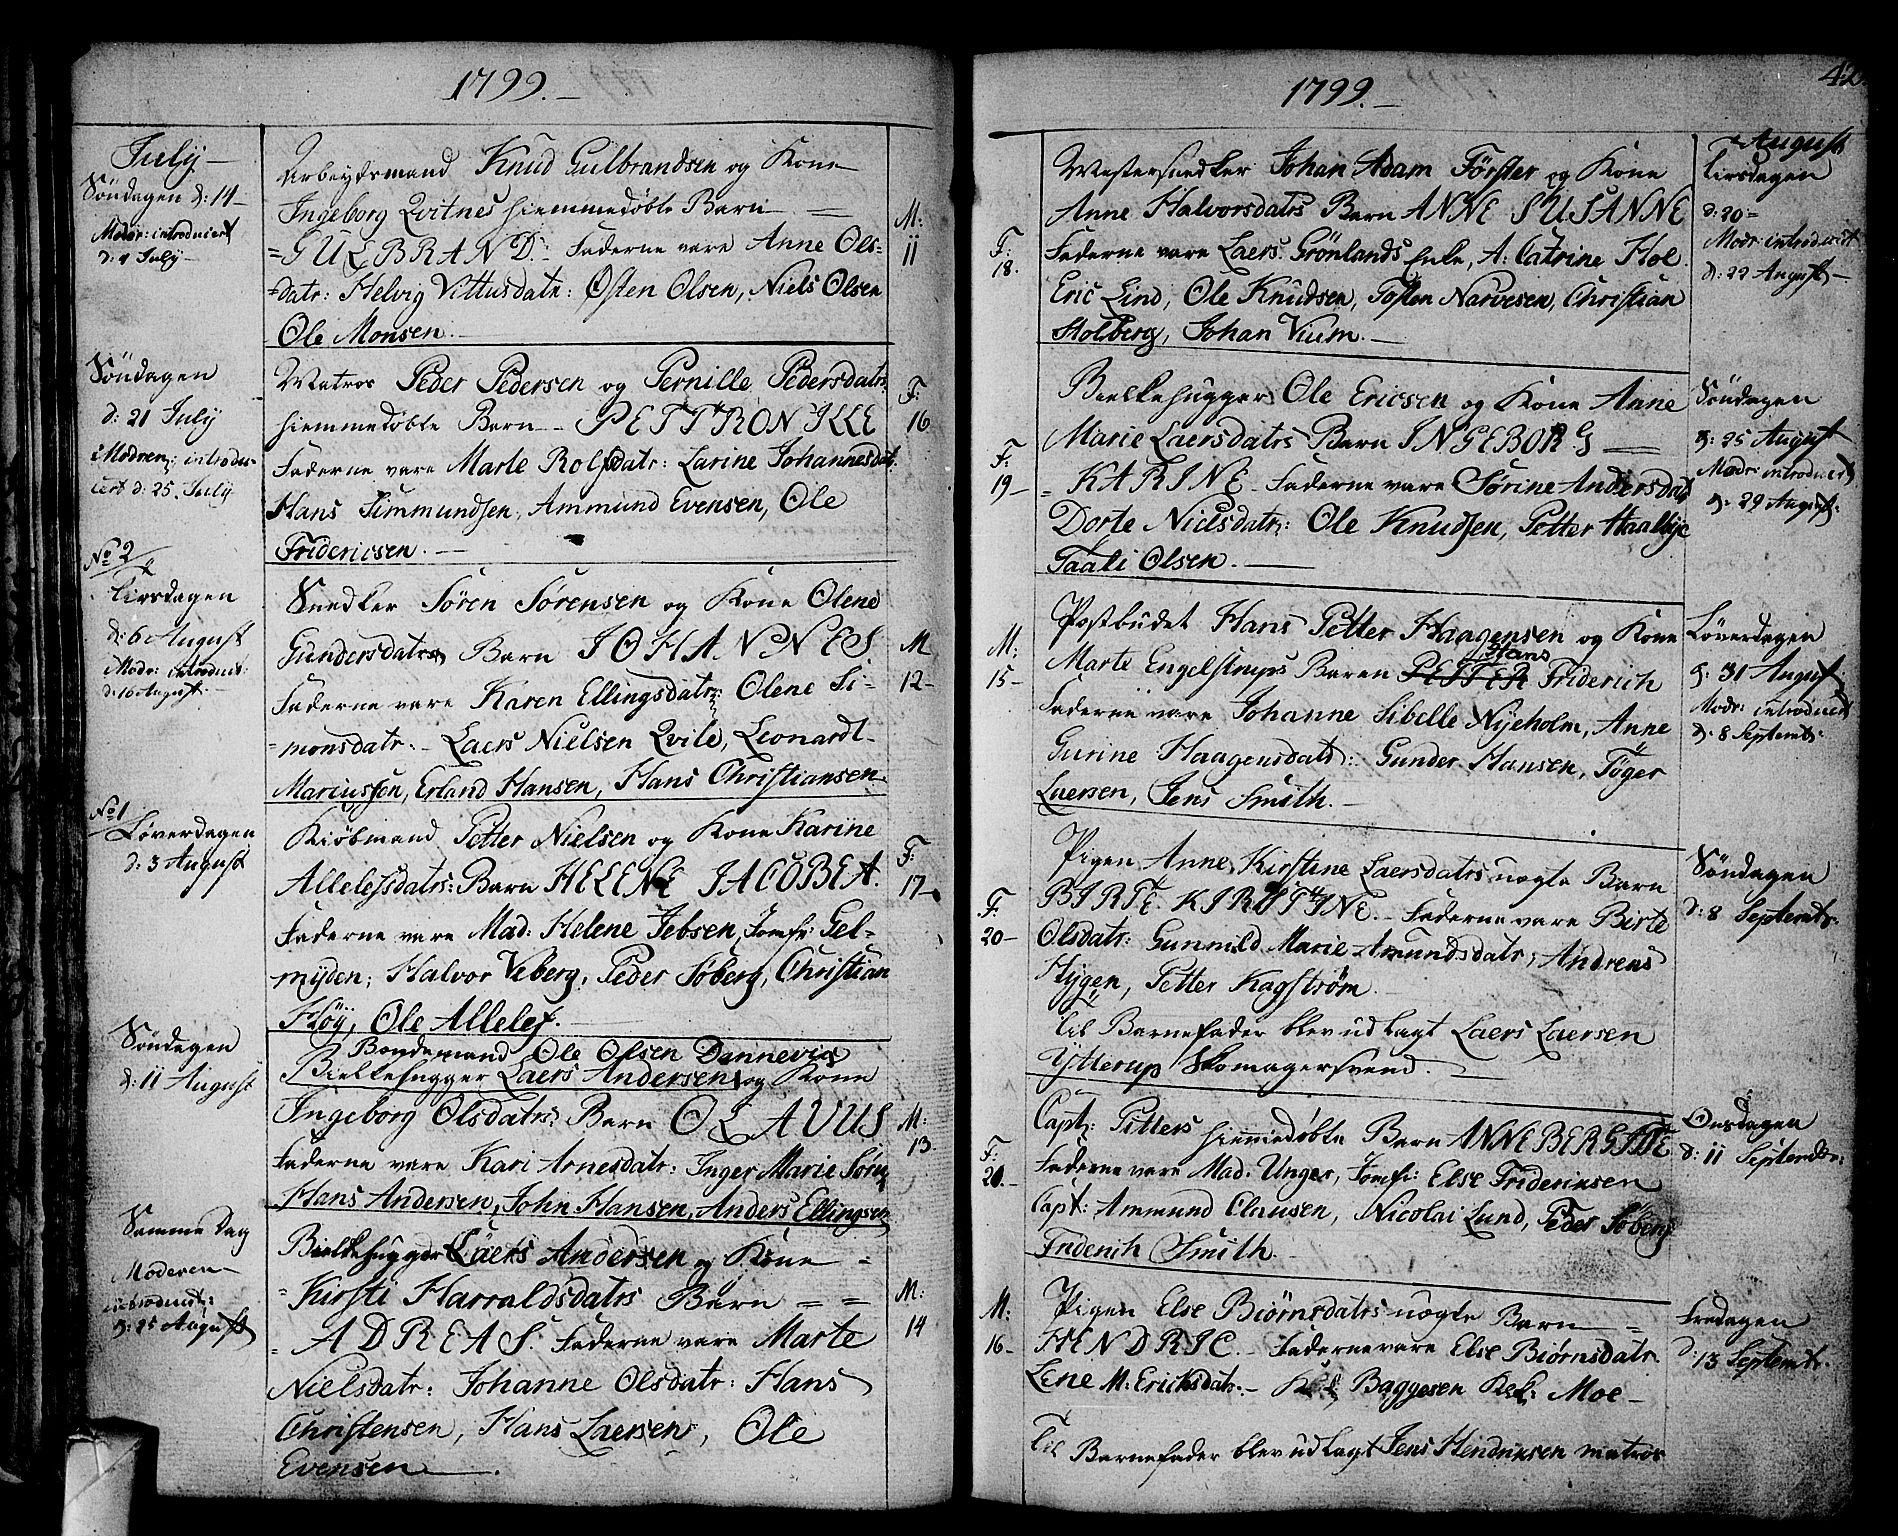 1799.
July
Söndagen d: 14
Modr: introduciert
d: 4 July
Arbeydsmand Knud Gulbrandsen og Kone
Ingeborg Qvitnes hiemmedøbte Barn
GULBRAND. Faderne vare Anne Ols-
datr: Helvig Vittusdatr: Østen Olsen, Niels Olsen
Ole Monsen.
M:
11
Söndagen
d: 21 July
Modren introdu-
cert d: 25 July
Matros Peder Pedersen og Pernille Pedersdatrs
hiemmedøbte Barn PETTRONILLE
Faderne vare Marte Rolfsdatr: Larine Johannesdatr.
Hans Simmundsen, Ammund Evensen, Ole
Fridericsen.
F:
16
No 2
Tirsdagen
d: 6 August
Modr: introduc:
d: 10 August
Snedker Sören Sörensen og Kone Olene
Gundersdatrs Barn JOHANNES
Faderne vare Karen Ellingsdatr: Olene Si-
monsdatr: Laers Nielsen Qvile, Leonardt
Mariussen, Erland Hansen, Hans Christiansen.
M
12
No 1
Løverdagen
d: 3 August
Kiöbmand Petter Nielsen og Kone Karine
Allelefsdatrs: Barn HELENE JACOBEA.
Faderne vare Mad: Helene Jebsen, Jomfr: Gel-
myden; Halvor Veberg, Peder Söberg, Christian
Flöy, Ole Allelef.
F:
17
Söndagen
d: 11 August
Bondemand Ole Olsen Dannevig
Bielkehugger Laers Andersen og Kone
Ingeborg Olsdatrs: Barn OLAVUS
Faderne vare Kari Arnesdatr: Inger Marie Sörn
Hans Andersen, John Hansen, Anders Ellingsen
M:
13
Samme Dag
Moderen
introducert:
d: 25 August
Bielkehugger Laers Andersen og Kone
Kirsti Harraldsdatrs Barn
ADREAS. Faderne vare Marte
Nielsdatr: Johanne Olsdatr: Hans
Christensen, Hans Laersen, Ole
Evensen.
M:
14
1799.
42
August
Tirsdagen
d: 20
Modr: introducert
d: 22 August
F:
18.
Mestersnedker Johan Adam Förster og Kone
Anne Halvorsdatrs Barn ANNE SUSANNE
Faderne vare Laers Grönlands Enke, A: Catrine Hol
Eric Lind, Ole Knudsen, Tosten Narvesen, Christian
Holberg, Johan Vium.
F:
19
Bielkehugger Ole Ericsen og Kone Anne
Marie Laersdatrs Barn INGEBORG
KARINE Faderne vare Sörine Andersdatr
Dorte Nielsdatr: Ole Knudsen, Petter Haalbye
Taali Olsen.
Söndagen
d: 25 August
Modr: introducert
d: 29 August:
M:
15
Postbudet Hans Petter Haagensen og Kone
Hans
Marte Engelstrups Baren PETTER Friderich
Faderne vare Johanne Sibelle Nyeholm, Anne
Gurine Haagensdatr: Gunder Hansen, Töger
Laersen, Jens Smith.
Løverdagen
d: 31 August
Modr: introducert
d: 8 Septembr:
F.
20
Pigen Anne Kirstine Laersdatrs uægte Barn
BIRTE KIRSTINE. Faderne vare Birte
Olsdatr: Gunnild Marie Amundsdatr, Andreas
Hygen, Petter Kagström.
Til Barnefader blev udlagt Laers Laersen
Ytterup Skomagersvend.
Söndagen
d: 8 Septembr.
F:
20.
Capt: Pitters hiemmedøbte Barn ANNE BERGITTE
Faderne vare Mad: Unger, Jomfr: Else Friderichsen
Capt: Ammund Clausen, Nicolai Lund, Peder Söberg
Friderich Smith.
Onsdagen
d: 11 Septembr:
M:
16
Pigen Else Biørnsdatrs uægte Barn
HENDRIC. Faderne vare Else Biørnsdatr.
Lene M: Ericksdatr: Baggesen Moe
Til Barnefader blev udlagt Jens Hendricksen matros
Fredagen
d: 13 Septembr.